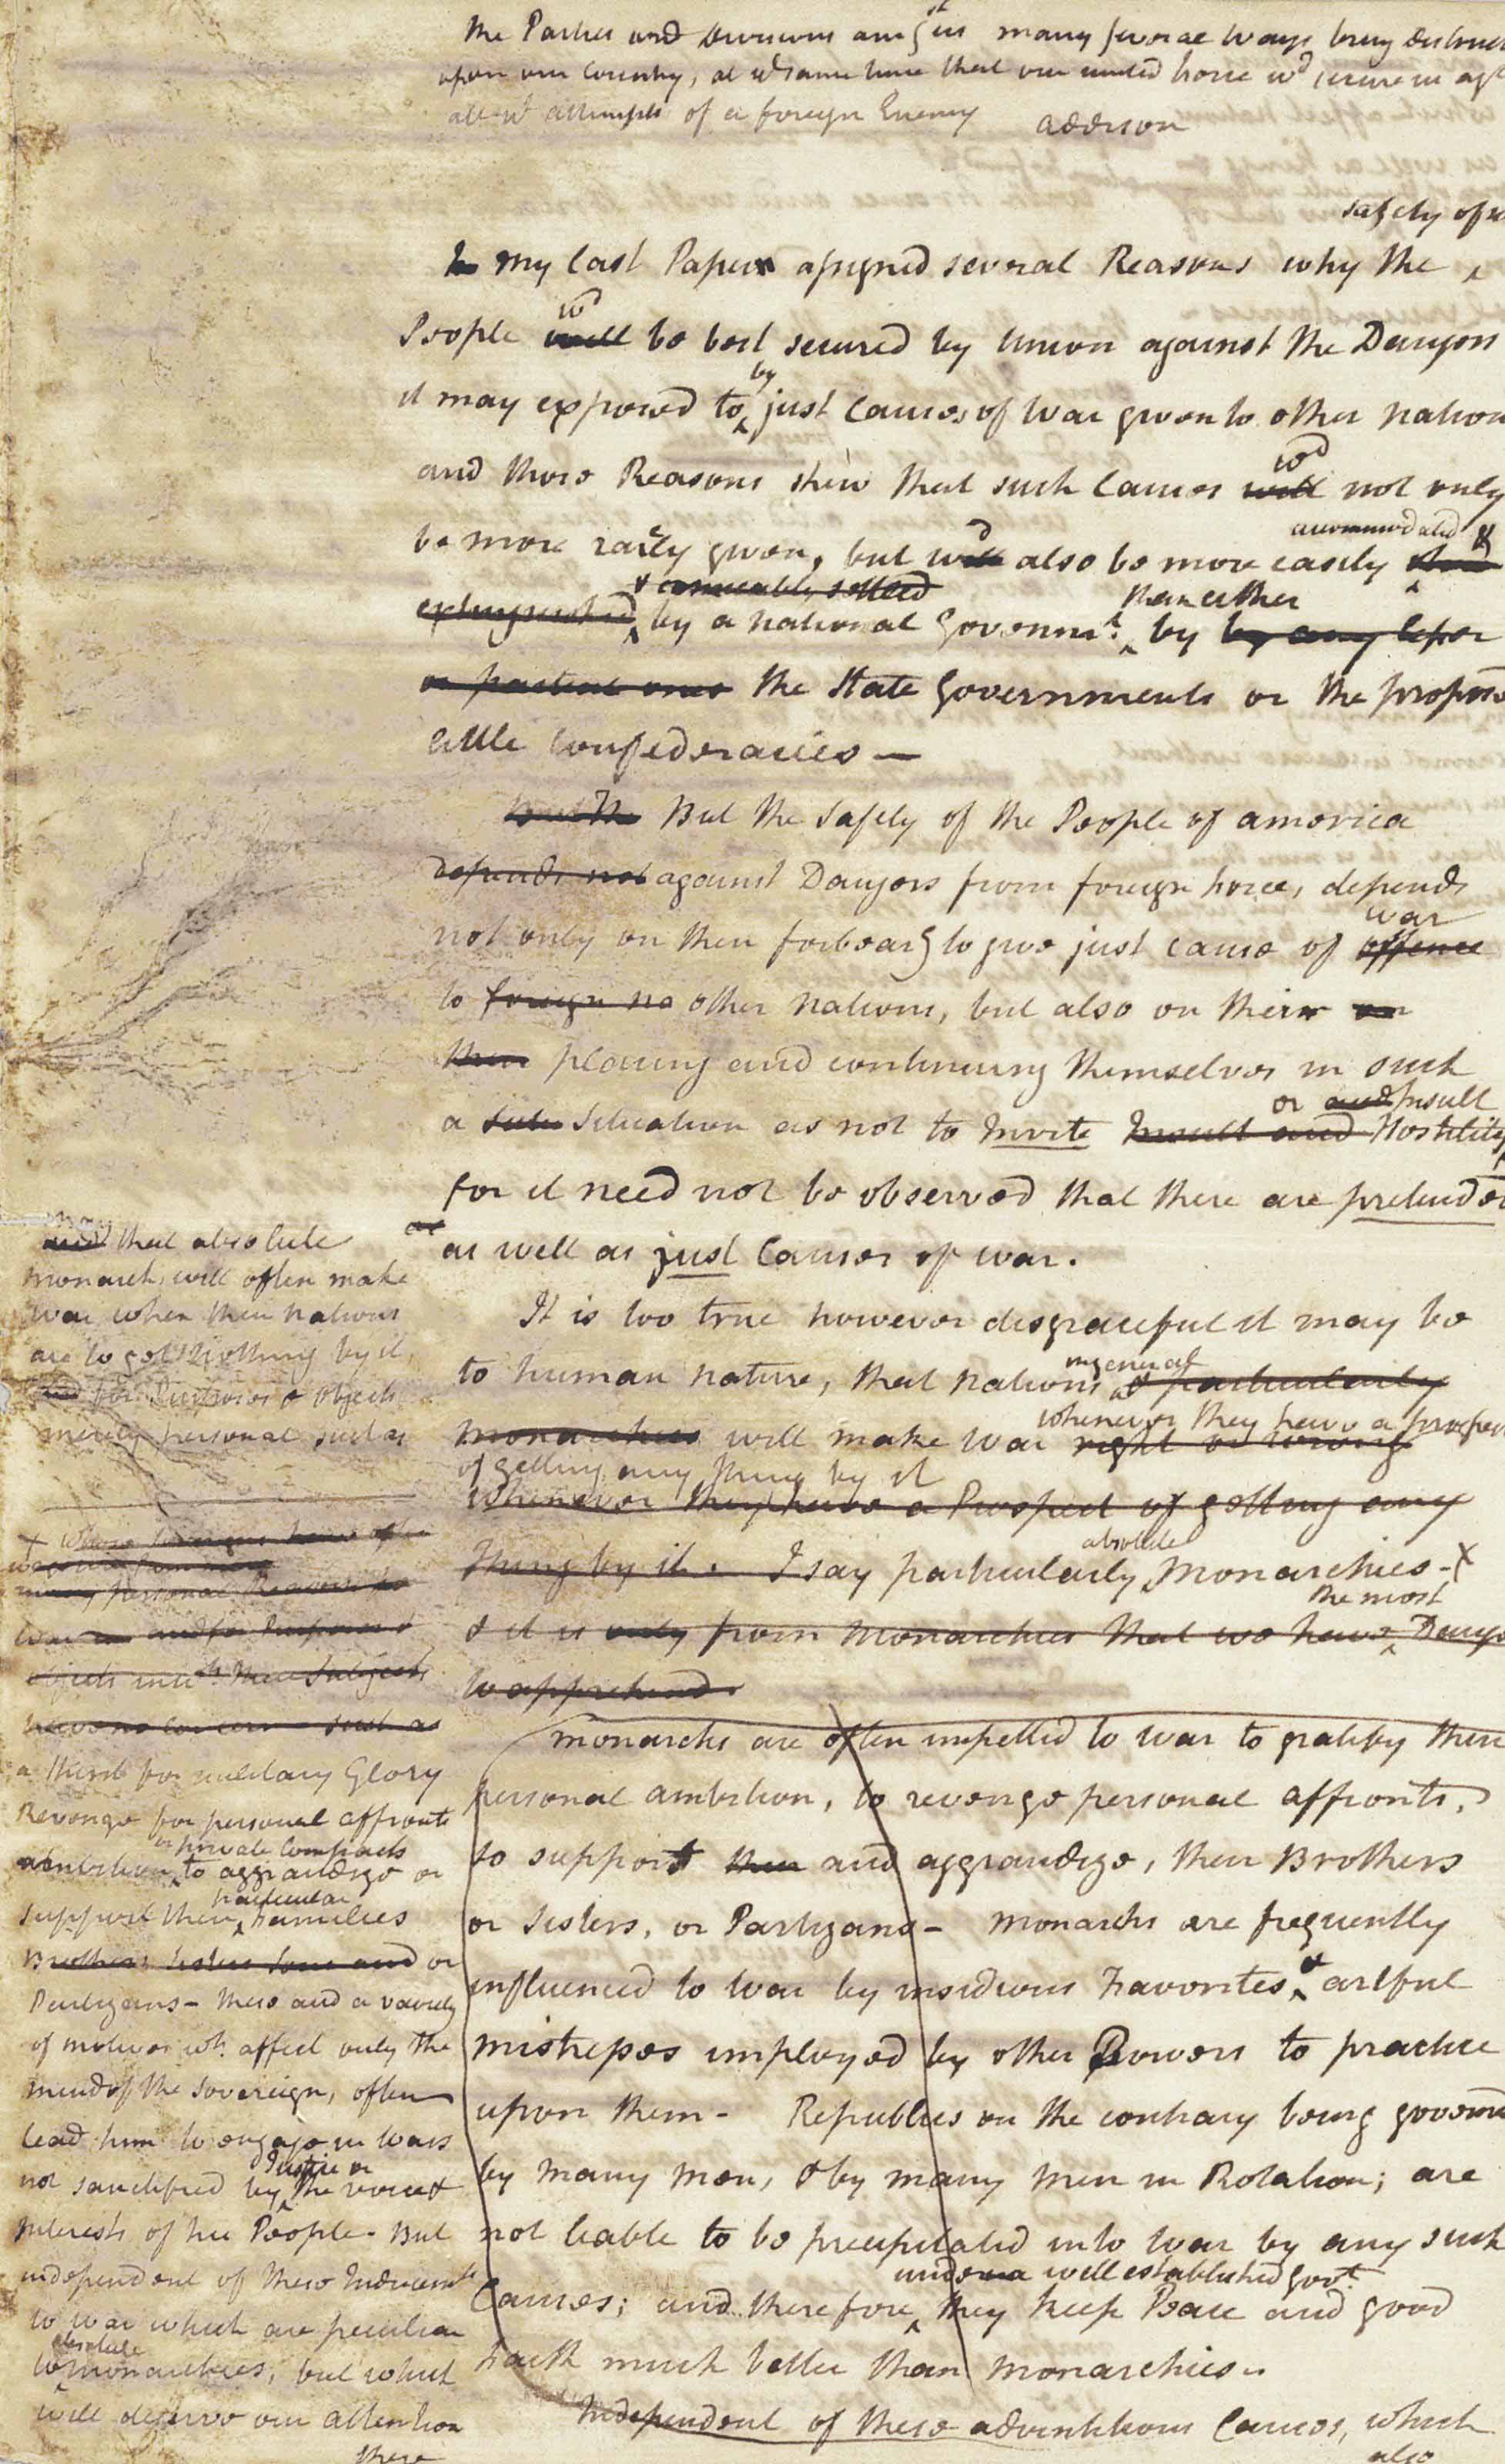 the Parties and Divisions amgst us many several ways bring destruct
upon our Country, at ye same time that our united Force wd secure us agt
all ye attempts of a foreign Enemy Addison
safety of ye
In my last Paper assigned several Reasons why the ^
People will wd be best secured by Union against the Danger
it may exposed to ^ by just Causes of war given to other nation
and those Reasons shew that such Causes will wd not only
be more rarely given, but wd also be more easily accommodated &
extinguished ^ & amicably settled by a national Governmt. ^ than either by by any lesser
or partial ones the State Governments or the propos
little Confederacies —
But the But the Safety of the People of america
depends not against Dangers from foreign force, depends
not only on their forbearg to give just cause of offence war
to foreign na other nations, but also on their on
their placing and continuing themselves in such
a situ Situation as not to Invite Insult and Hostility or and Insult
for it need not be observed that there are pretended
as as well as just Causes of war.
It is too true however disgraceful it may be
to human nature, that nations in general & particularly
monarchies will make war right or wrong whenever they have a prospect
of getting any thing by it
whenever they have a Prospect of getting any
Thing by it. I say particularly ^ absolute Monarchies - X
& it is only from monarchies that we have ^ the most Danger
to apprehend.
monarchs are often impelled to war to gratify their
personal ambition, to revenge personal affronts,
to support their and aggrandize, their Brothers
or Sisters, or Partizans — monarchs are frequently
influenced to war by insidious Favorites, ^ & artful
mistresses imployed by other Powers to practice
upon them - Republics on the contrary being governd
by many men, & by many men in Rotation; are
not liable to be precipitated into war by any such
Causes; and therefore ^ under a well established govt. they keep Peace and good
Faith much better than monarchies.
Independent of these adventitious Causes, which
also
may
and that absolute
monarchs will often make
war when their nations
are to get Nothing by it,
and for Purposes & Objects
merely personal such as
X whose Sovereigns have often
many personal Reasons to
war and for Purposes &
objects in wch. their Subjects
have no concern — such as
a thirst for military Glory
Revenge for personal affronts
ambition ^ or private Compacts to aggrandize or
support their ^ particular Families
Brothers Sisters Sons and or
Partizans - these and a variety
of motives wh. affect only the
mind of the Sovereign, often
lead him to engage in wars
not sanctified by ^ Justice or the voice &
Interests of his People - But
independent of these Inducemts
to war which are peculiar
to ^ absolute monarchies, but which
will deserve our attention
there